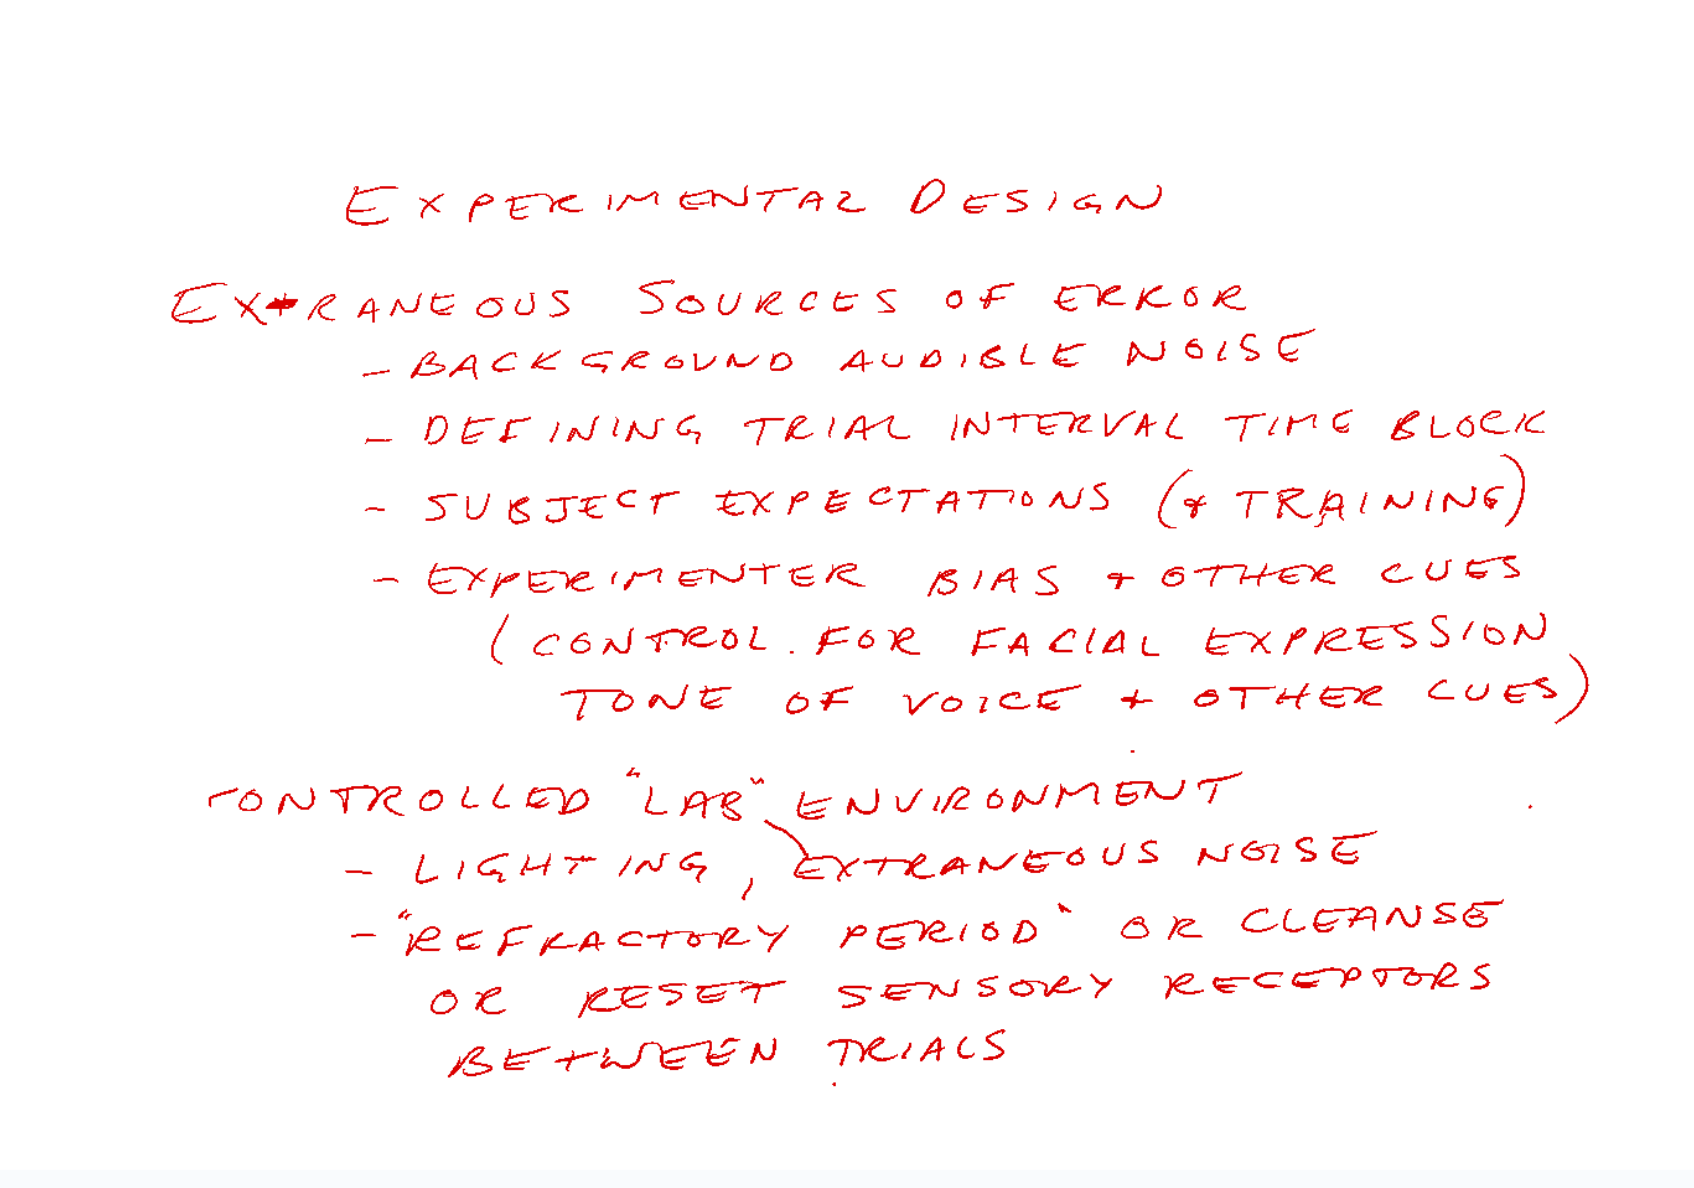 EXPERIMENTAL DESIGN
EXTRANEOUS SOURCES OF ERROR
- BACKGROUND AUDIBLE NOISE
- DEFINING TRIAL INTERVAL TIME BLOCK
- SUBJECT EXPECTATIONS (+ TRAINING)
- EXPERIMENTER BIAS + OTHER CUES
(CONTROL FOR FACIAL EXPRESSION
TONE OF VOICE + OTHER CUES)
CONTROLLED "LAB" ENVIRONMENT
- LIGHTING, EXTRANEOUS NOISE
- "REFRACTORY PERIOD" OR CLEANSE
OR RESET SENSORY RECEPTORS
BETWEEN TRIALS